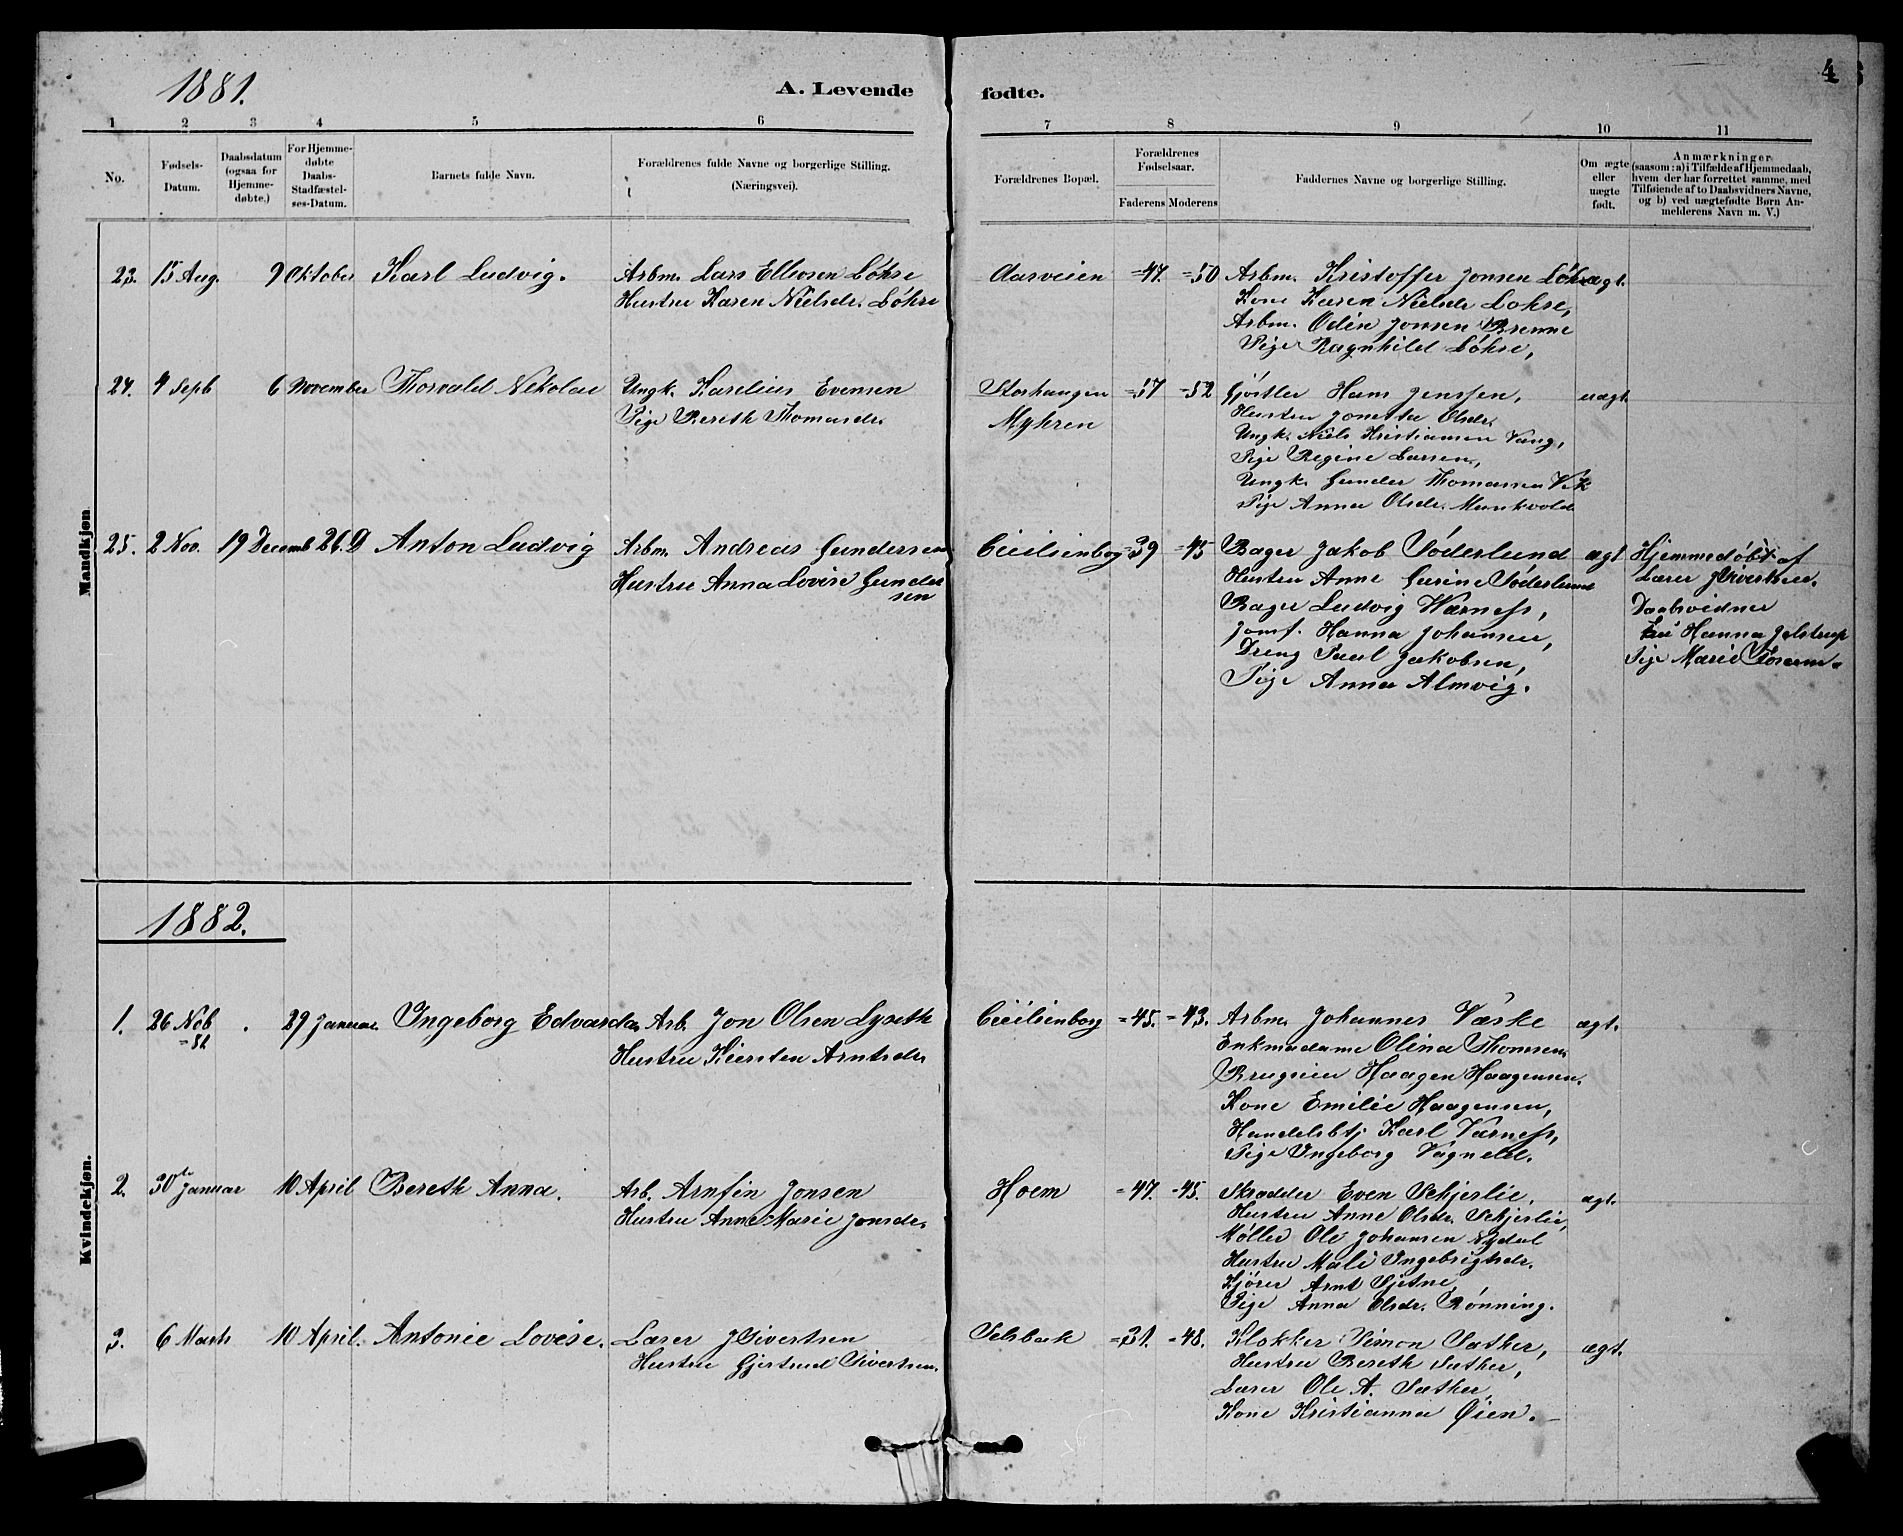 1881.
A. Levende fødte.
4
1 2 3 4 5 6 7 8 9 10 11
No.
Fødsels-Datum.
Daabsdatum (ogsaa for Hjemme-døbte.)
For Hjemme-døbte Daabs-Stadfæstel-ses-Datum.
Barnets fulde Navn.
Forældrenes fulde Navne og borgerlige Stilling.
(Næringsvei).
Forældrenes Bopæl.
Forældrenes Fødselsaar.
Faderens Moderens
Faddernes Navne og borgerlige Stilling.
Om ægte eller uægte født.
Anmærkninger
(saasom: a) i Tilfælde af Hjemmedaab,
hvem der har forrettet samme, med
Tilføiende af to Daabsvidners Navne,
og b) ved uægtefødte Børn An-
melderens Navn m. V.)
Mandkjøn.
23. 15 Aug. 9 Oktober Karl Ludvig. Arbm. Lars Ellevsen Løhse Aasveien =47. =50 Arbm. Kristoffer Jonsen Løhse ægt.
Hustru Karen Nielsdr. Løhse Kone Karen Nielsdr Løhse,
Arbm. Odin Jonsen Brenne
Pige Ragnhild Løhse,
24. 4 Septb 6 November Thorvald Nikolai Ungk. Karelius Evensen Storhaugen =57 =52 Gjørtler Hans Jenssen, uægt.
Pige Bereth Thomasdr. Myhren Hustru Jonetta Olsdr.
Ungk. Niels Kristiansen Vang,
Pige Regine Larsen,
Ungk. Gunder Thomassen Vik
Pige Anna Olsdr. Munkvold
25. 2 Nov. 19 Decemb 26. D Anton Ludvig Arbm. Andreas Gundersen Cicilienborg =39 =45 Bager Jakob Søderlund ægt Hjemmedøbt af
Hustru Anna Lovise Gunder Hustru Anne Gurine Søderlund Lærer J Sivertsen.
sen Bager Ludvig Wærness, Daabsvidner
Jomf. Hanna Johansen, Hanna Jelstrup
Dreng Paul Jakobsen, Pige Marie
Pige Anna Almvig.
1882.
Kvindekjøn.
1. 26 Nob =81 29 Januar. Ingeborg Edvarda Arb. Jon Olsen Lyseth Cicilienborg =45. =43. Arbm. Johannes Væske ægt.
Hustru Kiersten Arntsdr. Enkmadame Olina Thomsen,
Brugseier Haagen Haagensen.
Kone Emilie Haagensen,
Handelsbtj Karl Værness,
Pige Ingeborg Vagnild.
2. 30te Januar 10 April Bereth Anna. Arb. Arnfin Jonsen Hoem =47. =45. Skrædder Even Schjerlie. ægt.
Hustru Anne Marie Jonsdr. Hustru Anne Olsdr. Schjerlie,
Møller Ole Johansen Nydal
Hustru Mali Ingebrigtsdr.
Kjører Arnt Sjetne,
Pige Anna Olsdr. Rønning.
3. 6 Marts 10 April. Antonie Lovise. Lærer J Sivertsen Selsbak =31. =48. Klokker Simon Sæther, ægt.
Hustru Gjertrud Sivertsen. Hustru Bereth Sæther,
Lærer Ole A. Sæther,
Kone Kristianna Øien.